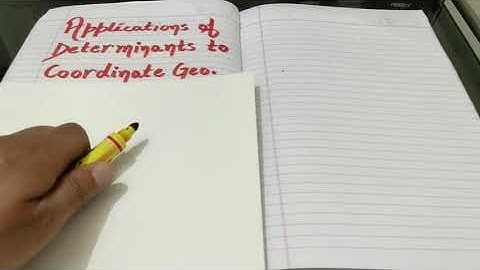 Applications of
Determinants to
Coordinate Geo.